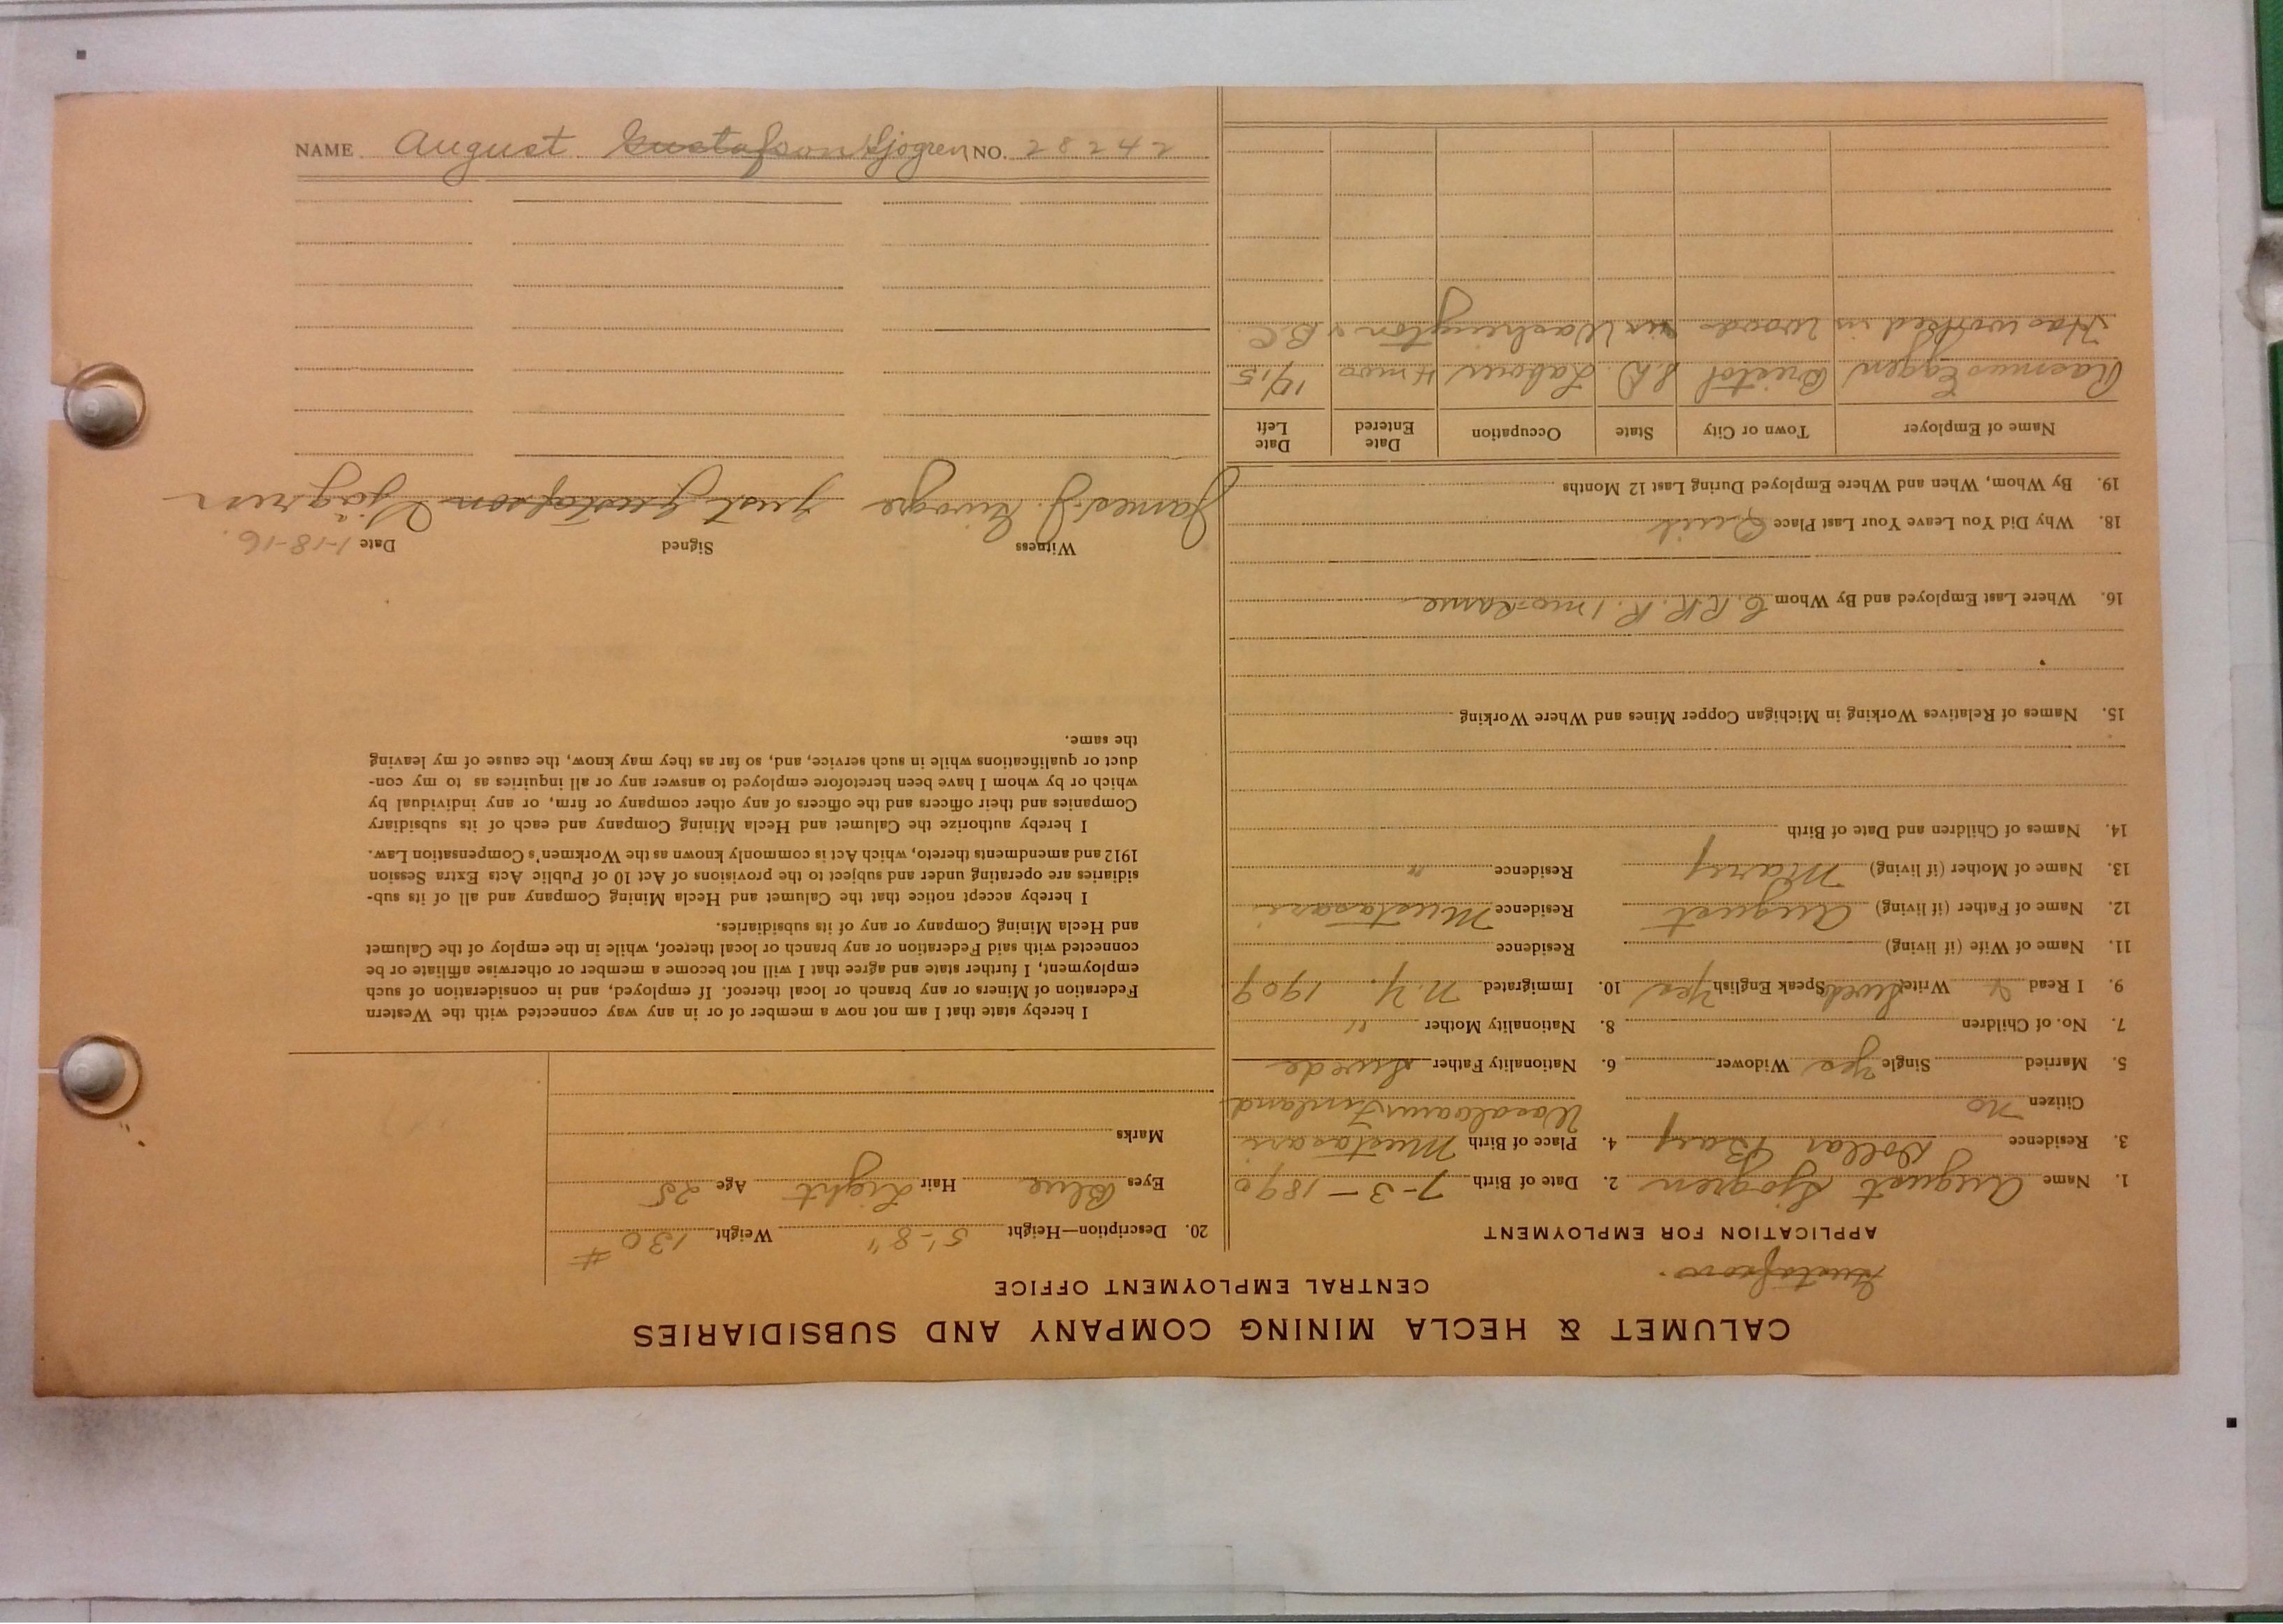 NAME August Gustafson Sjogren NO. 28242
CALUMET & HECLA MINING COMPANY AND SUBSIDIARIES
CENTRAL EMPLOYMENT OFFICE
Gustafson.
APPLICATION FOR EMPLOYMENT
1. Name August Sjogren 2. Date of Birth 7-3-1890
3. Residence Dollar Bay 4. Place of Birth Mustasari
Citizen no Wasalaan Finland
5. Married Single Yes Widower 6. Nationality Father Swede
7. No. of Children 8. Nationality Mother "
9. I Read Y Write Swed Speak English Yes 10. Immigrated N.Y. 1909
11. Name of Wife (if living) Residence
12. Name of Father (if living) August Residence Mustasari
13. Name of Mother (if living) Mary Residence "
14. Names of Children and Date of Birth
15. Names of Relatives Working in Michigan Copper Mines and Where Working
16. Where Last Employed and By Whom C.R.R.R. 1 mo.
18. Why Did You Leave Your Last Place Quit
19. By Whom, When and Where Employed During Last 12 Months
Name of Employer Town or City State Occupation Date Entered Date Left
Rasmus Eggen Bristol S.D. Laborer 4 mos 10/15
Has worked in Woods in Washington & B.C.
20. Description—Height 5'-8" Weight 130 #
Eyes Blue Hair Light Age 25
Marks
I hereby state that I am not now a member of or in any way connected with the Western
Federation of Miners or any branch or local thereof. If employed, and in consideration of such
employment, I further state and agree that I will not become a member or otherwise affiliate or be
connected with said Federation or any branch or local thereof, while in the employ of the Calumet
and Hecla Mining Company or any of its subsidiaries.
I hereby accept notice that the Calumet and Hecla Mining Company and all of its sub-
sidiaries are operating under and subject to the provisions of Act 10 of Public Acts Extra Session
1912 and amendments thereto, which Act is commonly known as the Workmen's Compensation Law.
I hereby authorize the Calumet and Hecla Mining Company and each of its subsidiary
Companies and their officers and the officers of any other company or firm, or any individual by
which or by whom I have been heretofore employed to answer any or all inquiries as to my con-
duct or qualifications while in such service, and, so far as they may know, the cause of my leaving
the same.
Witness Signed Date 1-18-16.
James J. Gustafson Sjögren